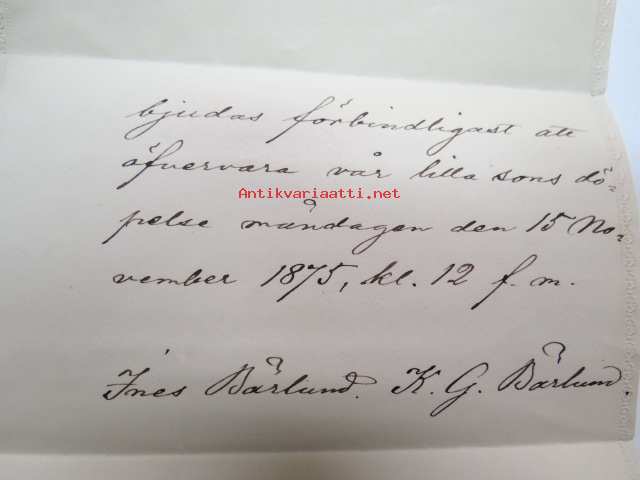 bjudas förbindligast att
öfvervara vår lilla sons dö-
Antikvariaatti.net
pelse måndagen den 15 No-
vember 1875, kl. 12 f. m.
Ines Bärlund. K. G. Bärlund.